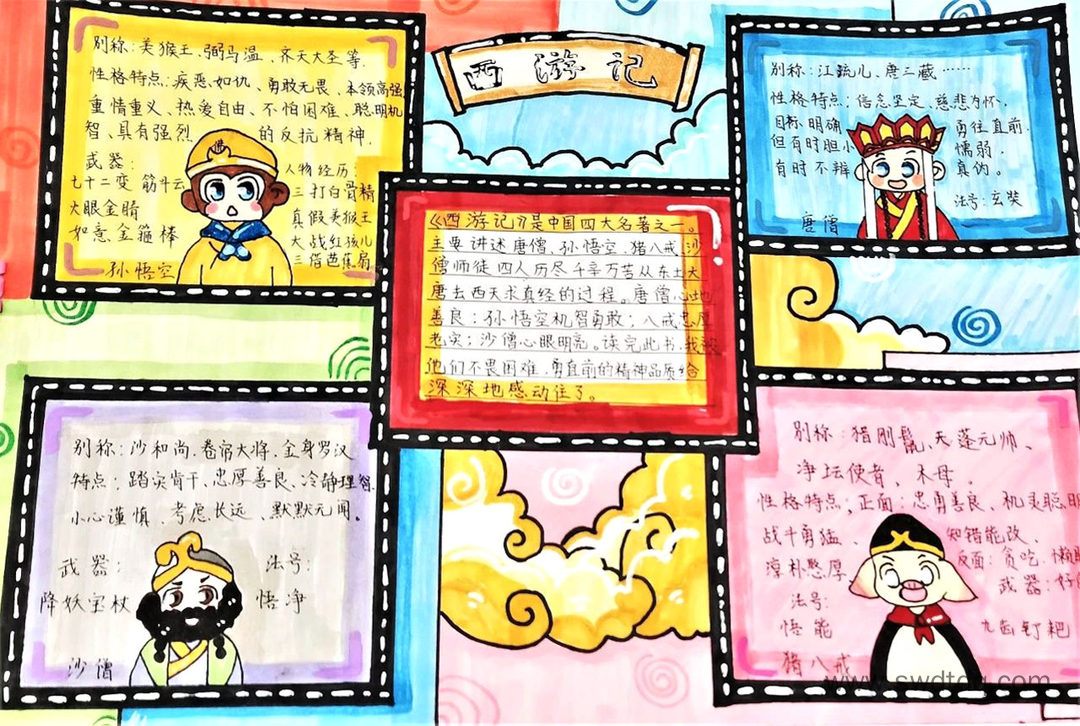 西游记
别称:美猴王、弼马温、齐天大圣等.
性格特点:疾恶如仇、勇敢无畏、本领高强
重情重义、热爱自由、不怕困难、聪明机
智、具有强烈 的反抗精神.
武器:
七十二变 筋斗云
火眼金睛
如意金箍棒
孙悟空
人物经历:
三打白骨精
真假美猴王
大战红孩儿
三借芭蕉扇
别称:江流儿、唐三藏……
性格特点:信念坚定、慈悲为怀,
目标明确 勇往直前.
但有时胆小 懦弱.
有时不辨 真伪。
法号:玄奘
唐僧
《西游记》是中国四大名著之一。
主要讲述唐僧,孙悟空,猪八戒,沙
僧师徒四人历尽千辛万苦从东土大
唐去西天求真经的过程。唐僧心地
善良;孙悟空机智勇敢;八戒忠厚
老实;沙僧心眼明亮。读完此书,我被
他们不畏困难,勇直前的精神品质给
深深地感动住了。
别称:沙和尚.卷帘大将.金身罗汉
特点:踏实肯干、忠厚善良、冷静理智
小心谨慎、考虑长远、默默无闻。
武器:
降妖宝杖
法号:
悟净
沙僧
别称:猪刚鬣、天蓬元帅、
净坛使者,木母。
性格特点:正面:忠勇善良、机灵聪明
战斗勇猛、 知错能改.
淳朴憨厚 反面:贪吃.懒
法号: 武器:
悟能 九齿钉耙
猪八戒